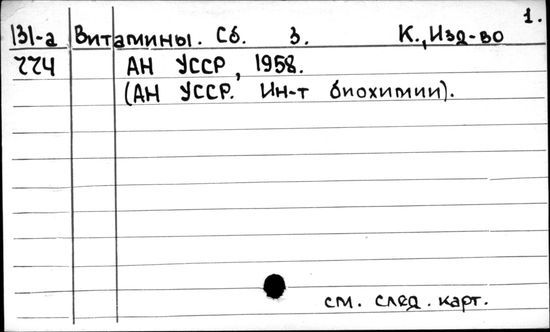 1.
131-а Витамины. Сб. 3. К., Изд-во
224 АН УССР, 1958.
(АН УССР. Ин-т биохимии).
см. след. карт.